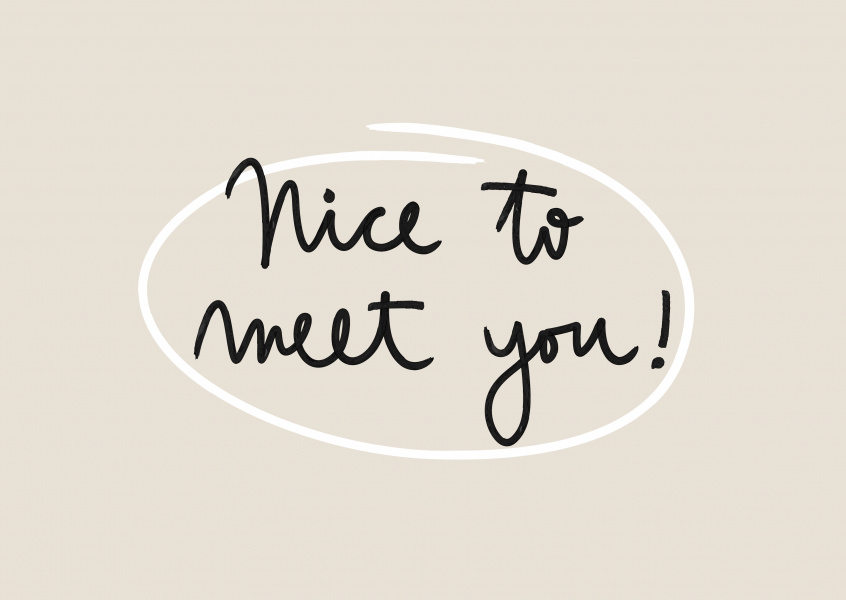 Nice to
meet you!